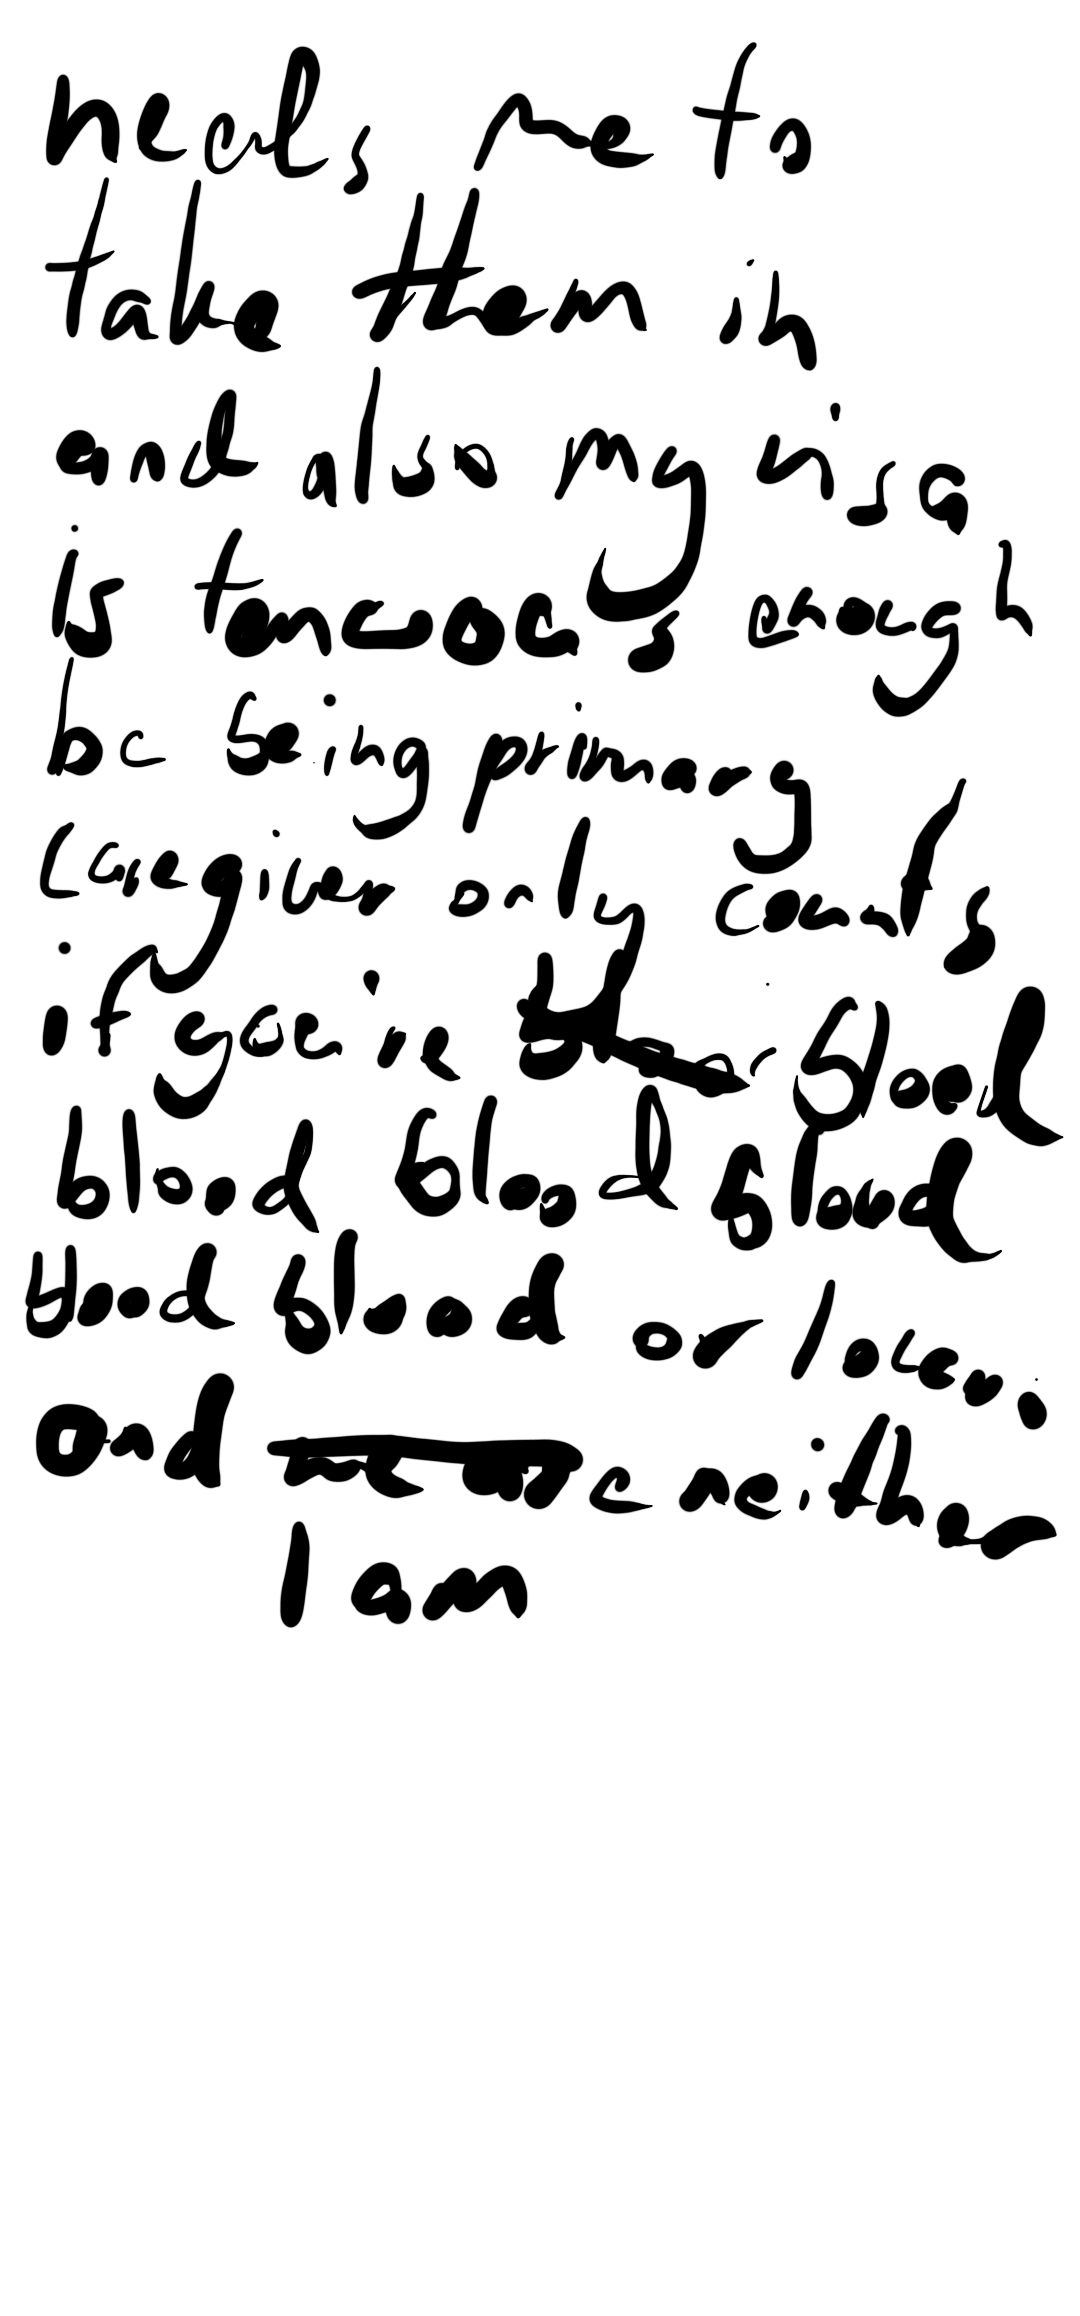 heals me to
take them in
and also my visa
is tenuous enough
bc being primary
caregiver only counts
if you're blood
blood blood blood
blood blood or lover.
and neither
I am